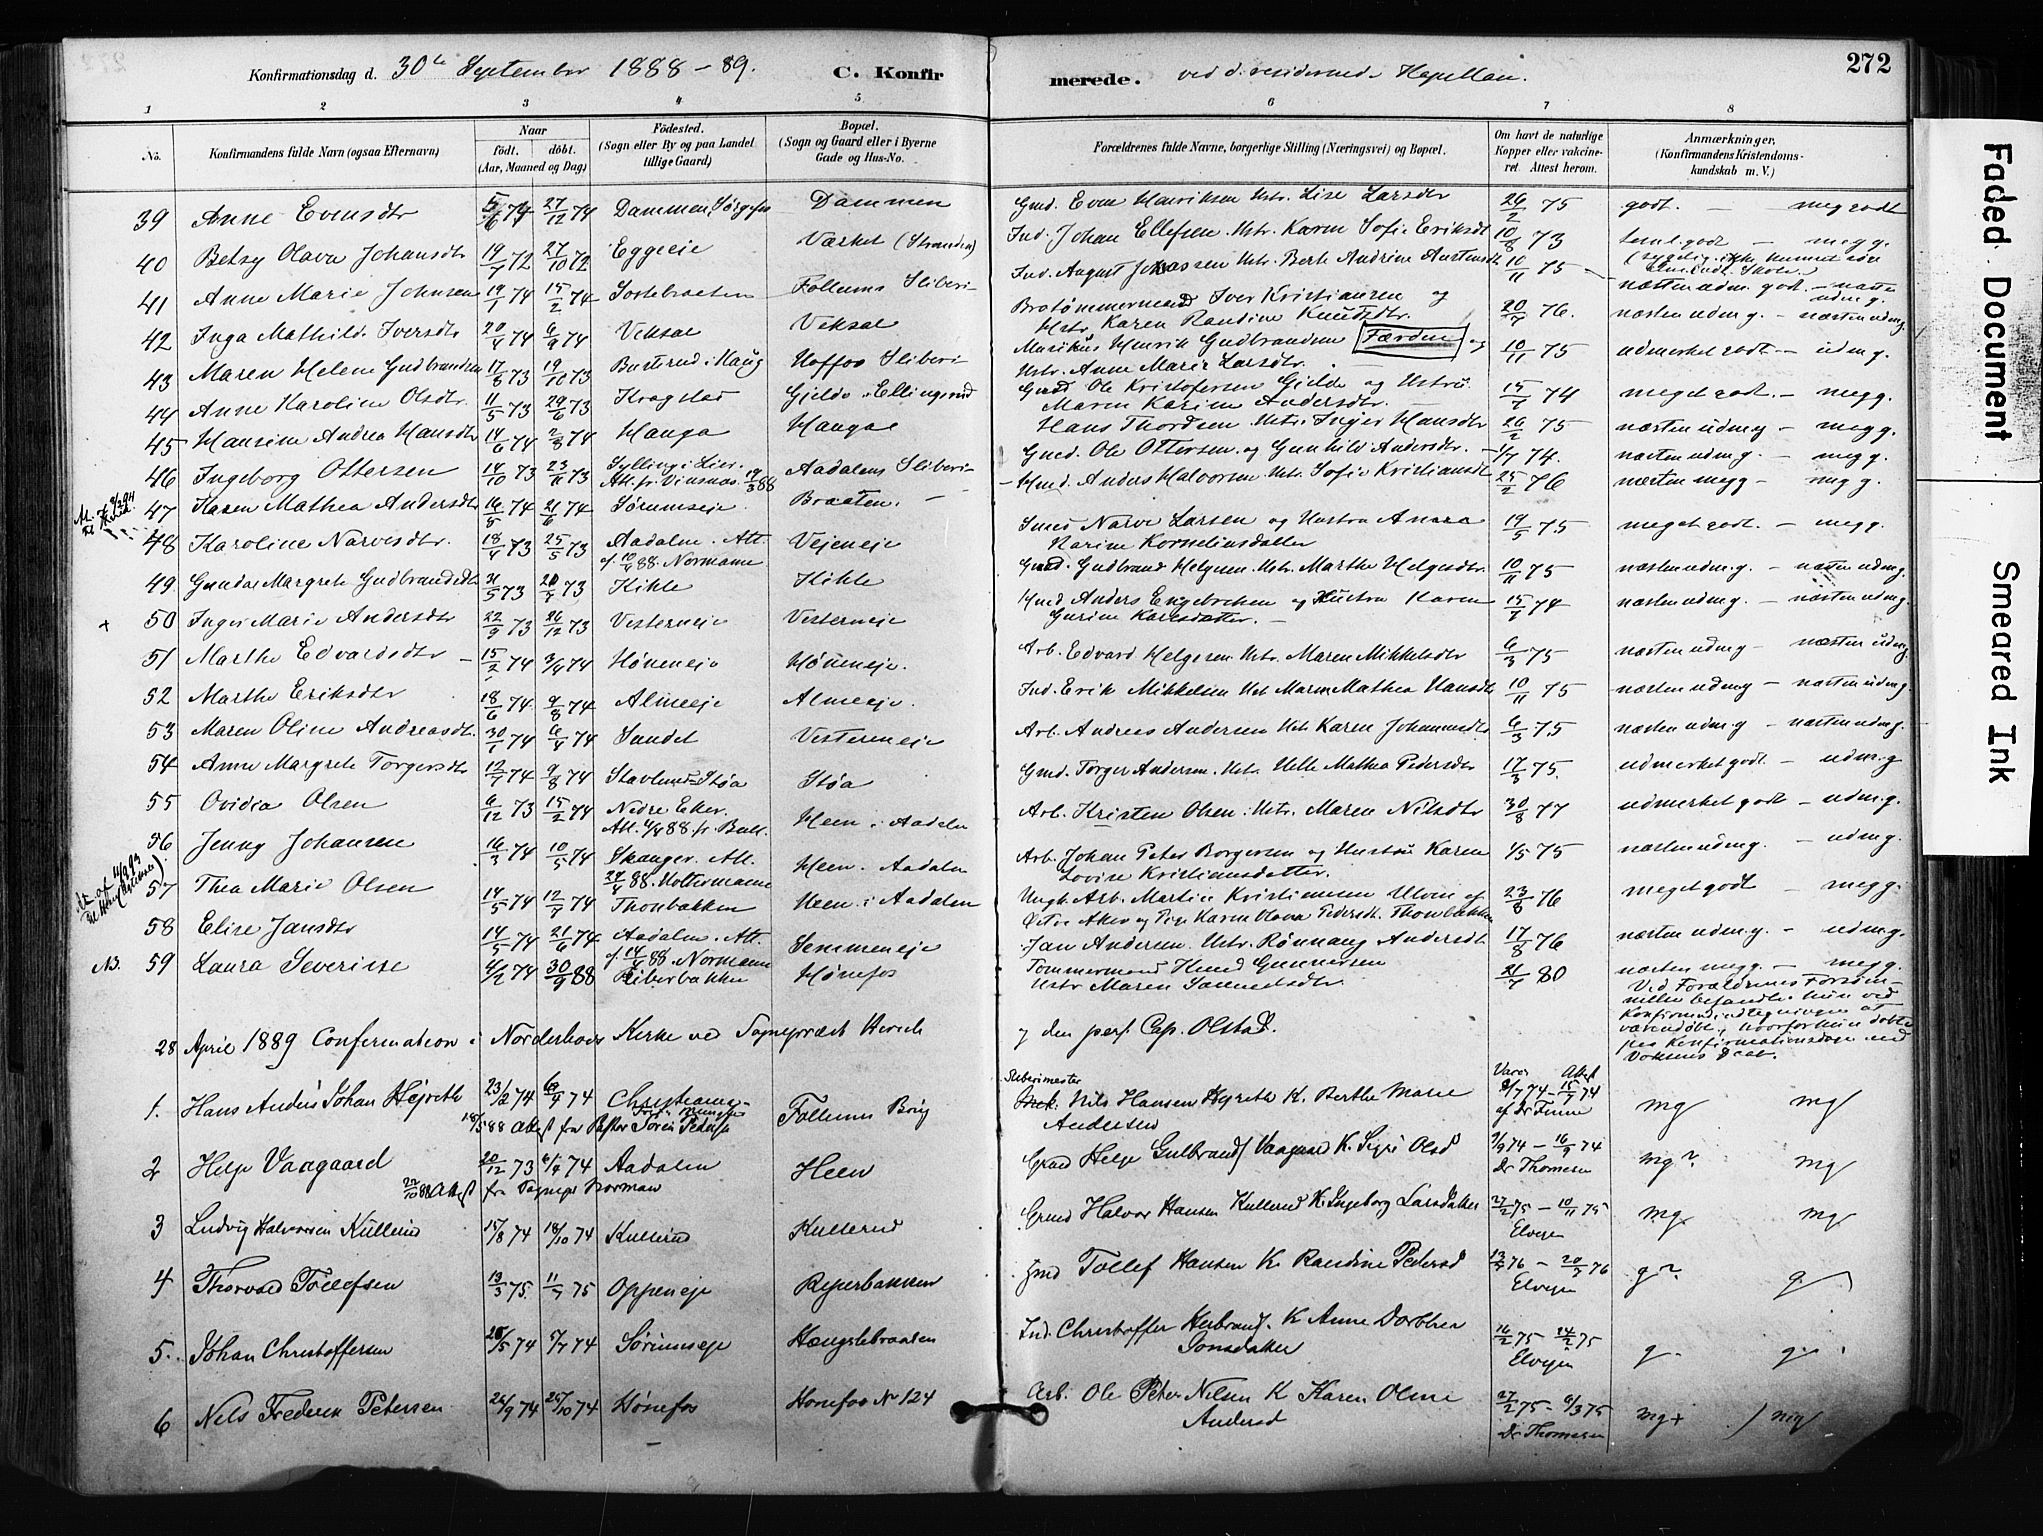 272
Konfirmationsdag d. 30te September 1888-89. C. Konfirmerede. ved d. residerende Kapellan.
1 2 3 4 5 6 7 8
No. Konfirmandens fulde Navn (ogsaa Efternavn)
Naar födt. döbt. (Aar, Maaned og Dag)
Födested. (Sogn eller By og paa Landet tillige Gaard)
Bopæl. (Sogn og Gaard eller i Byerne Gade og Hus-No.
Forældrenes fulde Navne, borgerlige Stilling (Næringsvei) og Bopæl.
Om havt de naturlige Kopper eller vakcineret Attest herom.
Anmærkninger, (Konfirmandens Kristendomskundskab m. V.)
39 Anne Evensdtr 27/12 74 Dammen Dammen Gmd. Even Henriksen Hstr. Lise Larsdtr 26/2 75 godt. – meg godt
40 Betzy Olava Johansdtr 19/7 72 27/10 72 Eggeeie Væsket (Stranden) Ind. Johan Ellefsen Hstr. Karen Sofie Eriksdt 10/8 73 teml. godt – meg g.
41 Anne Marie Johnsen 19/1 74 15/2 74 Sortebraaten Follums Sliberi Ind. August Hstr. Berte Andrine 10/11 75 næsten udm. godt. – næsten udm g.
42 Inga Mathild. Iversdtr 20/4 74 6/9 74 Veksal Veksal Brotømmermand Iver Kristiansen og Hstr. Karen Randine Knudsdtr. 20/7 76. næsten udm g. – næsten udmg
43 Maren Helene Gudbrandsen 17/8 73 19/10 73 Busterud i Haug Hoffos Sliberi Musikus Henrik Gudbrandsen Færden og Hstr. Anne Marie Larsdtr. 10/11 75 udmerket godt – udm g.
44 Anne Karoline Olsdtr. 11/5 73 29/6 73 Kragstad Gjelde i Ellingsrud Gmd Ole Kristofersen Gjelde og Hustru Maren Karine Andersdtr. 15/7 74 meget godt. – megg.
45 Hansine Andrea Hansdtr 14/6 74 2/8 74 Hanga Hangal Hans Thordsen Hstr. Inger Hansdtr 26/2 75 næsten udm g – megg.
46 Ingeborg Ottersen 14/10 73 23/11 73 Sylling i Lier. Att. fr. 19/3 88 Aadalens Sliberi Gmd. Ole Ottersen og Gunhild Andersdtr. 1/7 74. næsten udm g. – meg g.
47 Karen Mathea Andersdtr 16/5 74 21/6 74 Sørumseie Braaten. Hmd. Anders Halvorsen Hstr. Sofie Kristiansdt 25/2 76 næsten megg – meg g.
48 Karoline Narvesdtr. 18/4 73 25/5 73 Aadalen. Att. af. 10/4 88. Normann Vejeneje Smed Narve Larsen og Hustru Karine Kornelinsdatter 19/5 75 meget godt. – megg.
49 Gunda Margrete Gudbrandsdtr 31/5 73 20/7 73 Kihle Kihle Gmd. Gudbrand Helgesen Hstr. Marthe Helgesdtr. 10/11 75 næsten udm.g. – næsten udmg.
+ 50 Inger Marie Andersdtr 22/9 73 26/12 73 Vesterneje Vesterneje Hmd Anders Engebretsen og Hustru Karen Gurine 15/7 74 næsten udm g. – næsten udm g.
51 Marthe Edvardsdtr 15/2 74 3/4 74 Høneneje Høneneje. Arb. Edvard Helgesen Hstr. Maren Mikkelsdtr 6/3 75 næsten udm g – næsten udmg.
52 Marthe Eriksdtr 18/6 74 9/8 74 Almeeje Almeeje. Ind. Erik Mikkelsen Hst Maren Mathea Hansdt 10/11 75 næsten udm g – næsten udm g.
53 Maren Oline Andreasdt. 30/1 74 6/4 74 Sandet Vesterneje Arb. Andreas Andersen Hstr Karen Johannesdt 6/3 75 næsten udm.g – næsten udm g.
54 Anne Margrete Torgersdtr 12/7 74 9/8 74 Støa Støa Gmd. Torger Andersen Hstr. Helle Mathea Pedersdtr 17/3 75. udmerket godt. – udm. g
55 Ovidia Olsen 6/12 73 15/2 74 Nedre Eker. Heen i Aadalen Arb. Kristen Olsen Hstr. Maren Nilsdtr 30/8 77 udmerket godt – udm. g.
56 Jenny Johansen 16/3 74 10/5 74 Modum Heen i Aadalen Arb. Johan Peter Borgersen og Hustru Karen Lovise Kristiansdatter. 1/5 75 næsten udm g. – udm g.
57 Thea Marie Olsen 14/5 74 12/7 74 Thonbakken Heen i Aadalen Ungk. Arb. Martin Kristiansen Ulven af Østre Aker og Pige Karen Olava Pedersdt. Thonbakken 23/8 76 meget godt – meg g.
58 Elise Jansdtr 14/5 74 21/6 74 Aadalen. Att. af 14/4 88. Normann Semmeneje Jan Andersen Hstr. Rønnaug Andersdt 17/8 76 næsten udm g. – udm g.
NB. 59 Laura Severine 4/2 74 30/9 88 Riberbakken Hønefos Tømmermand Knud Gunnersen Hstr Maren Samuelsdtr. 21/7 80 næsten megg. – megg.
Ved Forældrenes Forsømmelse befandtes hun ved Konfirmandindtegningen at være udøbt, hvorfor hun døbtes paa Konfirmationsdagen med Voksnes Daab.
28 April 1889 Confirmation i Norderhovs Kirke ved Sogneprest Hersleb og den pers. Cap. Olstad.
1. Hans Anders Johan Høgreth 23/2 74 6/4 74 Christiania Follums Brug Sliberimester Nils Hansen K. Berthe Marie Andersen Vacc 9/7 74 – Attest 15/7 74 af Dr Finne mg mg
2 Helge Vaagaard 20/12 73 6/4 74 Aadalen Heen Gmd Helge Gulbrands. Vaagaard K. Sigri Olsd 9/9 74 – 16/9 74 Dr Thomesen mg? mg
22/10 88 Attest fra Sognepr. Norman
3 Ludvig Halvorsen Kullerud 15/8 74 18/10 74 Kullerud Kullerud Grmd Halvor Hansen Kullerud K. Ingeborg Larsdatter 27/2 75 – 10/11 75 Elvejen mg mg
4 Thorvald Tollefsen 13/3 75. 11/7 75 Oppeneje Reperbanen Gmd Tollef Hansen K. Randine Pedersd 13/7 76 – 20/7 76 Elvejen g? g.
5. Johan Christoffersen 26/5 74 5/7 74 Sørumseje Hængslebraaten Ind. Christoffer Herbrands. K Anne Dorthea Jonsdatter 16/2 75 – 24/2 75 Elvejen g. g.
6 Nils Frederik Petersen 26/9 74 25/10 74 Hønefos Hønefos No 124 Arb. Ole Peter Nilsen K Karen Oline Andersd 27/2 75 – 6/3 75 Dr Thomesen mg+ / mg
Faded Document
Smeared Ink